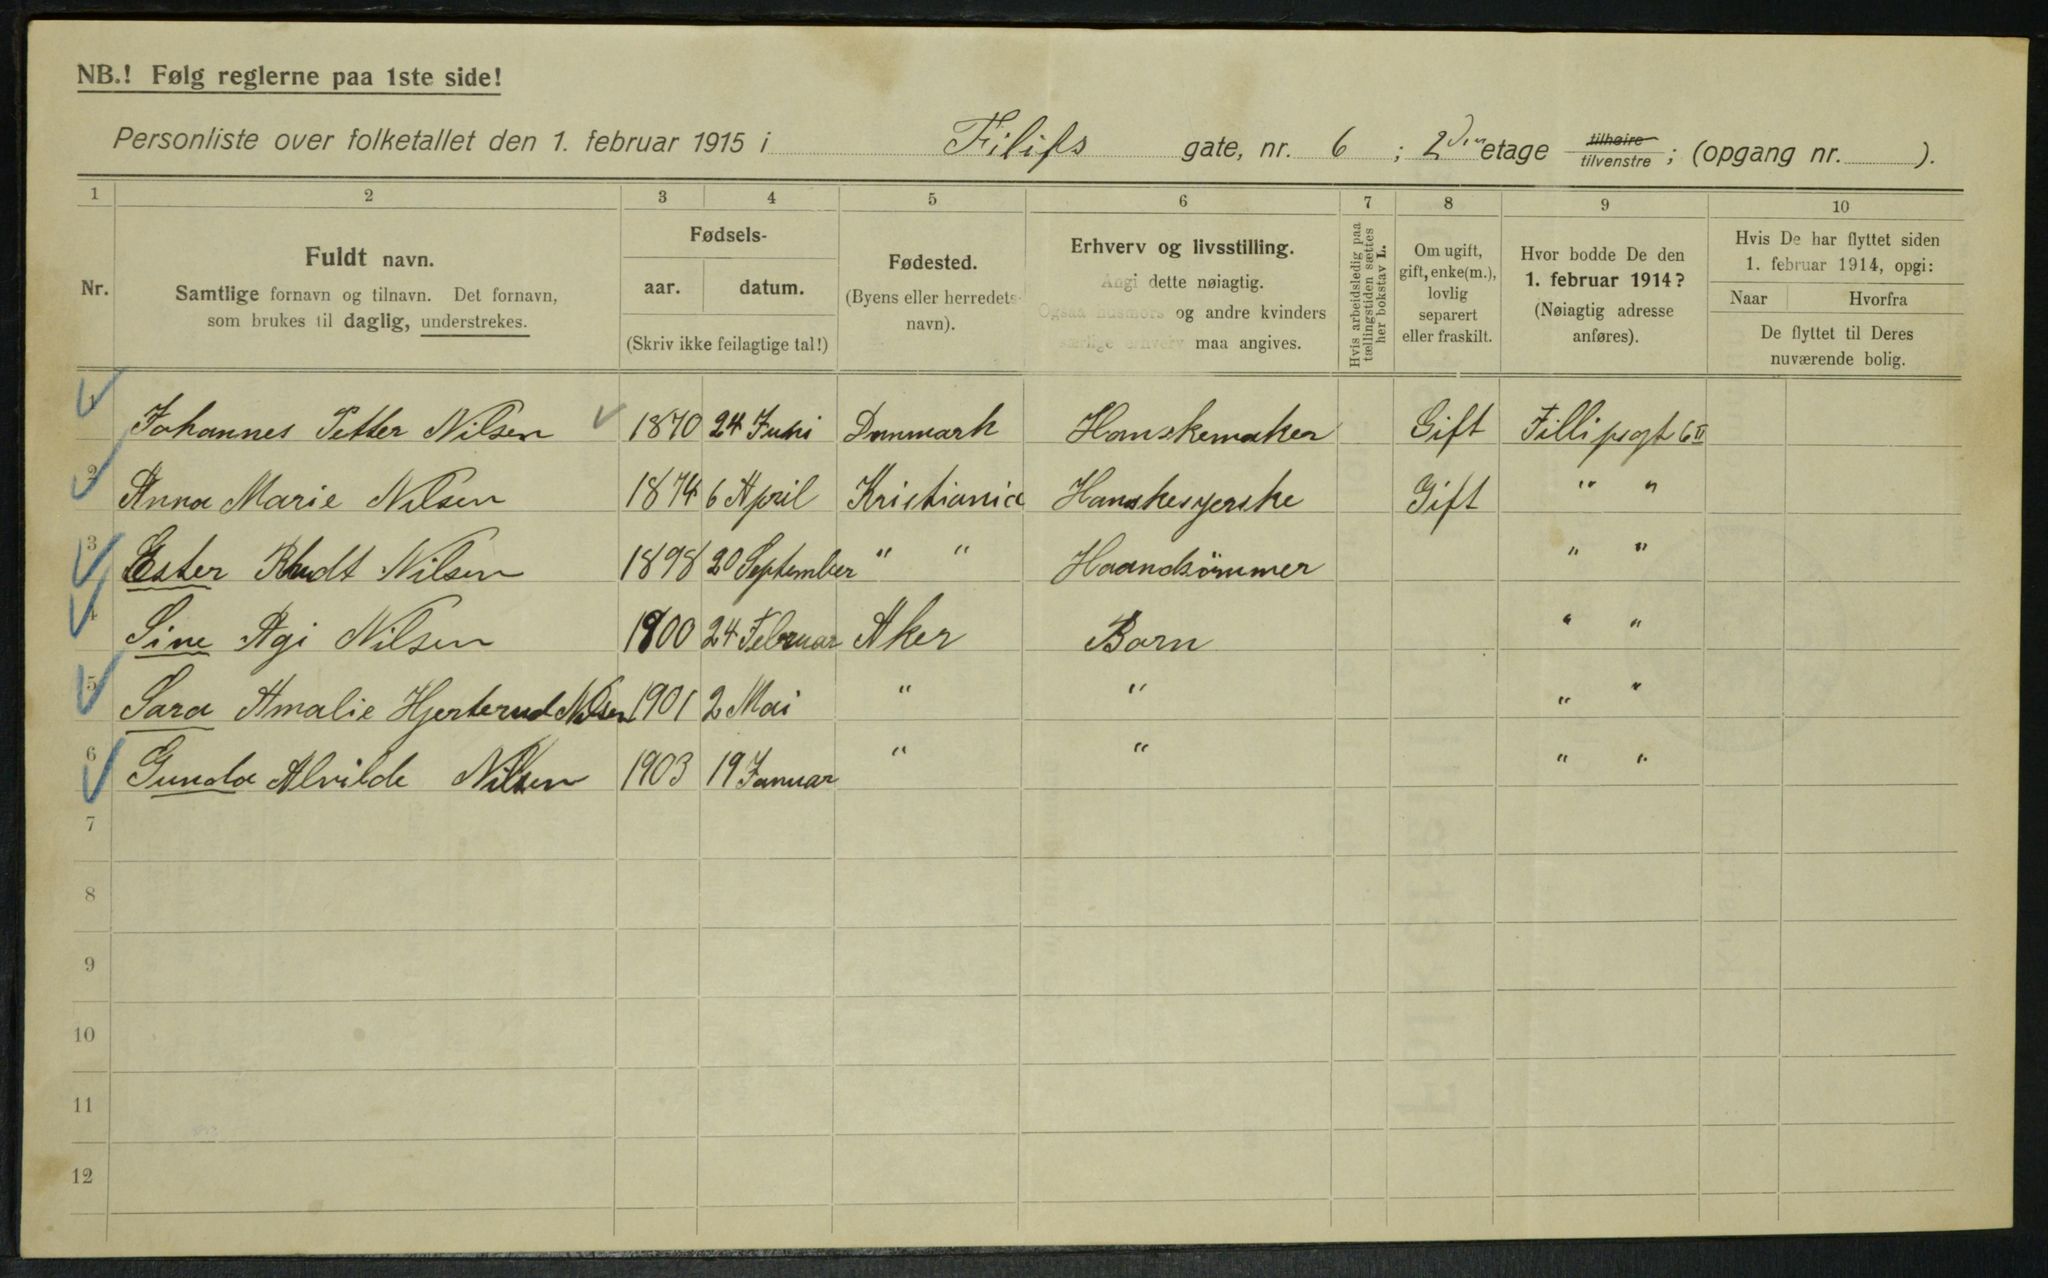 NB.! Følg reglerne paa 1ste side!
Personliste over folketallet den 1. februar 1915 i Filips gate, nr. 6 ; 2den etage tilhøire tilvenstre ; (opgang nr. ).
1 2 3 4 5 6 7 8 9 10
Nr.
Fuldt navn.
Samtlige fornavn og tilnavn. Det fornavn,
som brukes til daglig, understrekes.
Fødsels-
aar. datum.
(Skriv ikke feilagtige tal!)
Fødested.
(Byens eller herredets
navn).
Erhverv og livsstilling.
Angi dette nøiagtig.
Ogsaa husmors og andre kvinders
særlige erhverv maa angives.
Hvis arbeidsledig paa
tællingstiden sættes
her bokstav L.
Om ugift,
gift, enke(m.),
lovlig
separert
eller fraskilt.
Hvor bodde De den
1. februar 1914?
(Nøiagtig adresse
anføres).
Hvis De har flyttet siden
1. februar 1914, opgi:
Naar Hvorfra
De flyttet til Deres
nuværende bolig.
1 Johannes Petter Nilsen 1870 24 Juni Danmark Hanskemaker Gift Fillipsgt 6 II
2 Anna Marie Nilsen 1874 6 April Kristiania Hanskesyerske Gift " "
3 Ester Rhudt Nilsen 1898 20 September " " Haandsömmer " "
4 Sine Agi Nilsen 1900 24 Februar Aker Barn " "
5 Sara Amalie Hjerterud Nilsen 1901 2 Mai " " " "
6 Gunda Alvilde Nilsen 1903 19 Januar " " " "
7
8
9
10
11
12